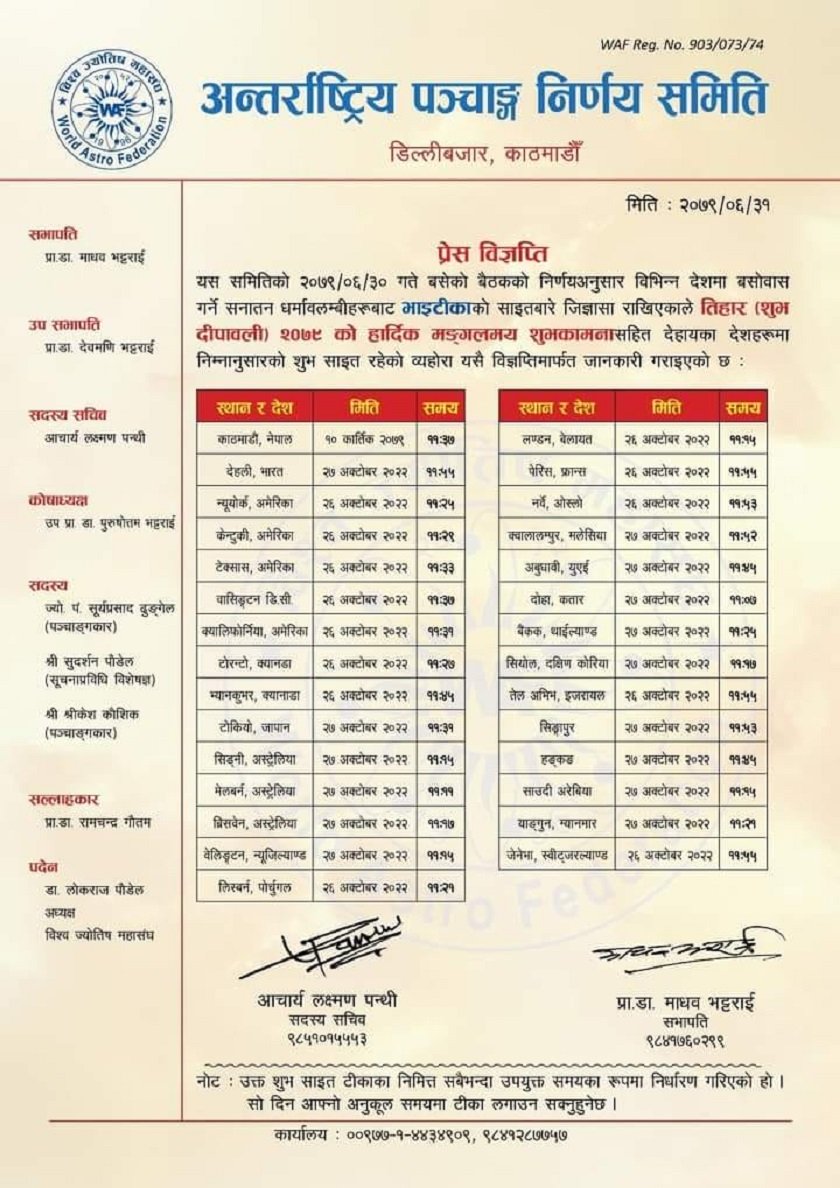 WAF Reg. No. 903/073/74
विश्व ज्योतिष महासंघ
WAF
World Astro Federation
अन्तर्राष्ट्रिय पञ्चाङ्ग निर्णय समिति
डिल्लीबजार, काठमाडौँ
मिति : २०७९/०६/३१
सभापति
प्रा.डा. माधव भट्टराई
उप सभापति
प्रा.डा. देवमणि भट्टराई
सदस्य सचिव
आचार्य लक्ष्मण पन्थी
कोषाध्यक्ष
उप प्रा. डा. पुरुषोतम भट्टराई
सदस्य
ज्यो. पं. सूर्यप्रसाद ढुङ्गेल
(पञ्चाङ्गकार)
श्री सुदर्शन पौडेल
(सूचनाप्रविधि विशेषज्ञ)
श्री श्रीकेश कौशिक
(पञ्चाङ्गकार)
सल्लाहकार
प्रा.डा. रामचन्द्र गौतम
पदेन
डा. लोकराज पौडेल
अध्यक्ष
विश्व ज्योतिष महासंघ
प्रेस विज्ञप्ति
यस समितिको २०७९/०६/३० गते बसेको बैठकको निर्णयअनुसार विभिन्न देशमा बसोवास
गर्ने सनातन धर्मावलम्बीहरूबाट भाइटीकाको साइतबारे जिज्ञासा राखिएकाले तिहार (शुभ
दीपावली) २०७९ को हार्दिक मङ्गलमय शुभकामनासहित देहायका देशहरूमा
निम्नानुसारको शुभ साइत रहेको व्यहोरा यसै विज्ञप्तिमार्फत जानकारी गराइएको छ :
स्थान र देश मिति समय
काठमाडौ, नेपाल १० कार्तिक २०७९ ११:३७
देहली, भारत २७ अक्टोबर २०२२ ११:५५
न्यूयोर्क, अमेरिका २६ अक्टोबर २०२२ ११:२५
केन्टुकी, अमेरिका २६ अक्टोबर २०२२ ११:२९
टेक्सास, अमेरिका २६ अक्टोबर २०२२ ११:३३
वासिङ्टन डि.सी. २६ अक्टोबर २०२२ ११:३७
क्यालिफोर्निया, अमेरिका २६ अक्टोबर २०२२ ११:३१
टोरन्टो, क्यानडा २६ अक्टोबर २०२२ ११:२७
भ्यानकुभर, क्यानाडा २६ अक्टोबर २०२२ ११:४५
टोकियो, जापान २७ अक्टोबर २०२२ ११:३१
सिड्नी, अस्ट्रेलिया २७ अक्टोबर २०२२ ११:१५
मेलबर्न, अस्ट्रेलिया २७ अक्टोबर २०२२ ११:११
ब्रिसवेन, अस्ट्रेलिया २७ अक्टोबर २०२२ ११:१७
वेलिङ्टन, न्यूजिल्याण्ड २७ अक्टोबर २०२२ ११:१५
लिस्बर्न, पोर्चुगल २६ अक्टोबर २०२२ ११:२१
स्थान र देश मिति समय
लण्डन, बेलायत २६ अक्टोबर २०२२ ११:१५
पेरिस, फ्रान्स २६ अक्टोबर २०२२ ११:५५
नर्वे, ओस्लो २६ अक्टोबर २०२२ ११:५३
क्वालालम्पुर, मलेसिया २७ अक्टोबर २०२२ ११:५२
अबुधावी, युएई २७ अक्टोबर २०२२ ११:४५
दोहा, कतार २७ अक्टोबर २०२२ ११:०७
बैंकक, थाईल्याण्ड २७ अक्टोबर २०२२ ११:२५
सियोल, दक्षिण कोरिया २७ अक्टोबर २०२२ ११:१७
तेल अभिभ, इजरायल २६ अक्टोबर २०२२ ११:५५
सिङ्गापुर २७ अक्टोबर २०२२ ११:५३
हङ्कङ २७ अक्टोबर २०२२ ११:४५
साउदी अरेबिया २७ अक्टोबर २०२२ ११:१५
याङ्गुन, म्यानमार २७ अक्टोबर २०२२ ११:२१
जेनेभा, स्वीट्जरल्याण्ड २६ अक्टोबर २०२२ ११:५५
आचार्य लक्ष्मण पन्थी
सदस्य सचिव
९८५१०१५५५३
प्रा.डा. माधव भट्टराई
सभापति
९८४१७६०२९९
नोट : उक्त शुभ साइत टीकाका निमित्त सबैभन्दा उपयुक्त समयका रूपमा निर्धारण गरिएको हो ।
सो दिन आफ्नो अनुकूल समयमा टीका लगाउन सक्नुहुनेछ ।
कार्यालय : ००९७७-१-४४३४९०९, ९८४१२८७७५७